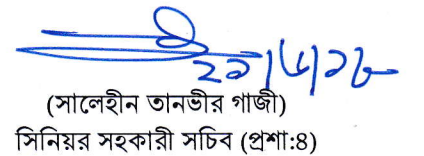 ২১/৬/১৮
(সালেহীন তানভীর গাজী)
সিনিয়র সহকারী সচিব (প্রশা:৪)